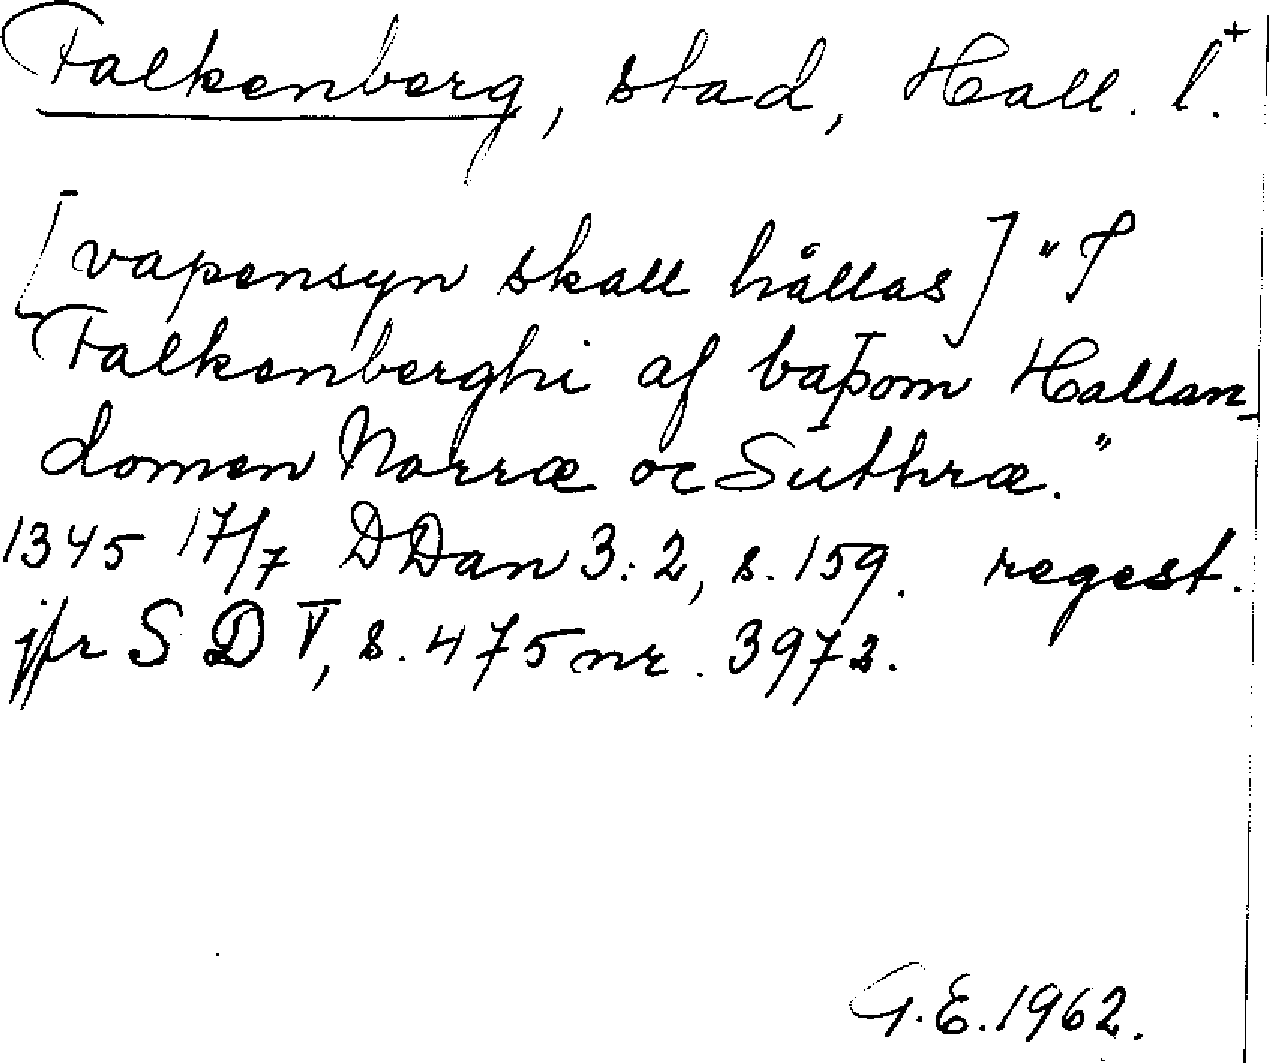 Falkenberg, stad, Hall. l.+
[vapensyn skall hållas] "I
Falkenberghi af baþom Hallan-
domen Norræ oc Suthræ."
1345 17/7 DDan 3:2, s. 159. regest.
jfr SD V, s. 475 nr. 3972.
G.E. 1962.